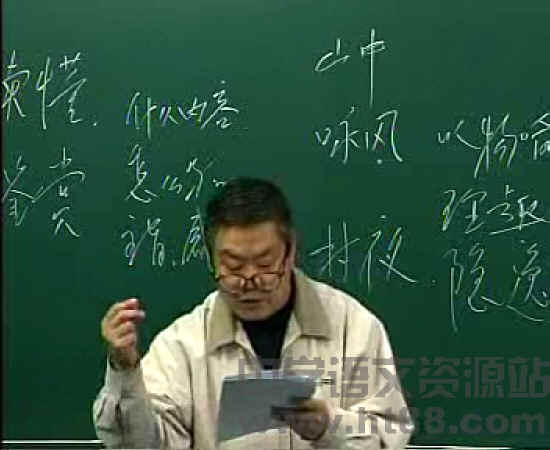 读懂
什么内容
鉴赏
怎么
山中
咏风
以物喻
理趣
村夜
隐逸
中学语文资源站
www.ht88.com